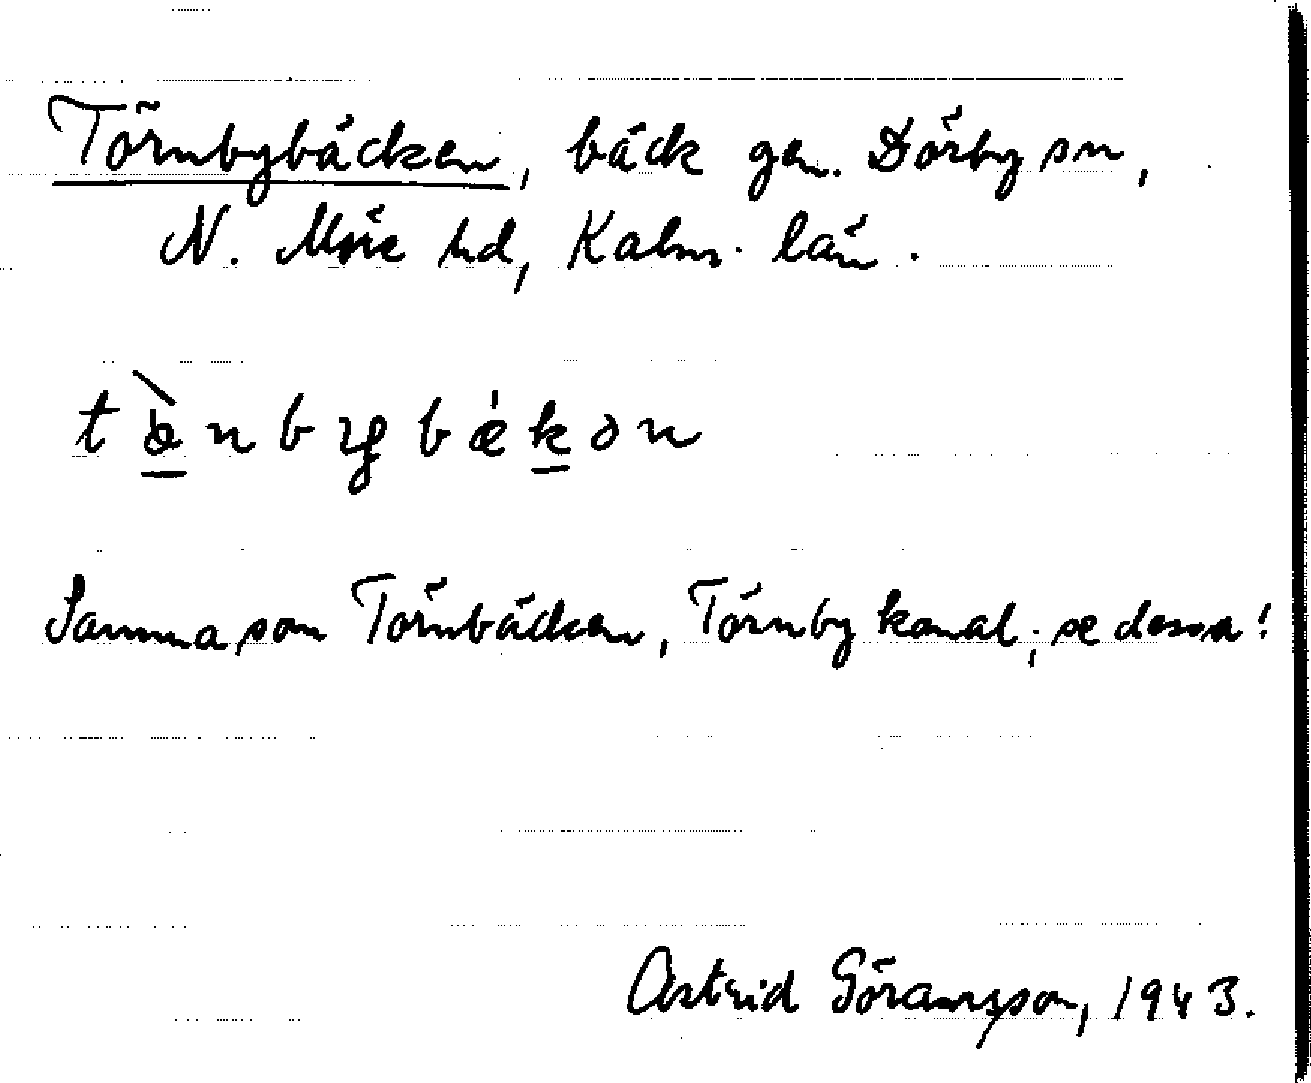 Törnbybäcken, bäck gen. Dörby sn,
N. Möre hd, Kalm. län.
Samma som Törnbäcken, Törnby kanal; se dessa!
Astrid Göransson, 1943.